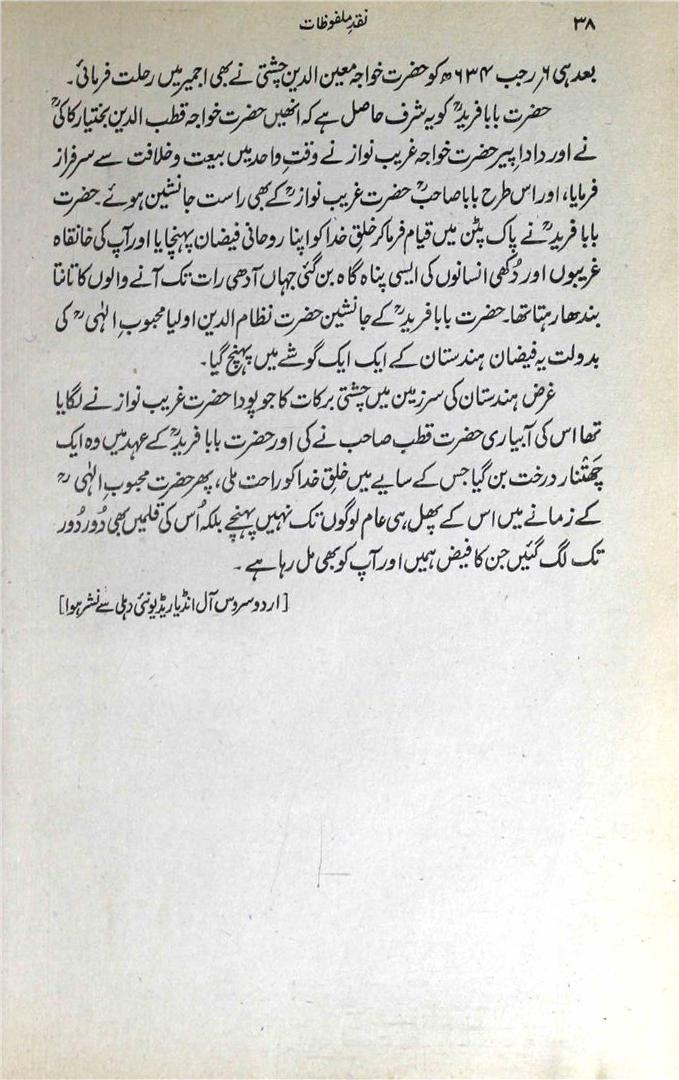 ۳۸
نقدِ ملفوظات
بعد ہی ۶؍رجب ۶۳۴ھ کو حضرت خواجہ معین الدین چشتی نے بھی اجمیر میں رحلت فرمائی۔
حضرت بابا فریدؒ کو یہ شرف حاصل ہے کہ انھیں حضرت خواجہ قطب الدین بختیار کاکیؒ
نے اور دادا پیر حضرت خواجہ غریب نواز نے وقتِ واحد میں بیعت و خلافت سے سرفراز
فرمایا، اور اس طرح بابا صاحبؒ حضرت غریب نوازؒ کے بھی راست جانشین ہوئے۔ حضرت
بابا فریدؒ نے پاک پٹن میں قیام فرما کر خلقِ خدا کو اپنا روحانی فیضان پہنچایا اور آپ کی خانقاہ
غریبوں اور دُکھی انسانوں کی ایسی پناہ گاہ بن گئی جہاں آدھی رات تک آنے والوں کا تانتا
بندھا رہتا تھا۔ حضرت بابا فریدؒ کے جانشین حضرت نظام الدین اولیا محبوبِ الٰہیؒ کی
بدولت یہ فیضان ہندستان کے ایک ایک گوشے میں پہنچ گیا۔
غرض ہندستان کی سرزمین میں چشتی برکات کا جو پودا حضرت غریب نواز نے لگایا
تھا اس کی آبیاری حضرت قطب صاحب نے کی اور حضرت بابا فریدؒ کے عہد میں وہ ایک
چَھتنار درخت بن گیا جس کے سایے میں خلقِ خدا کو راحت ملی، پھر حضرت محبوبِ الٰہیؒ
کے زمانے میں اس کے پھل ہی عام لوگوں تک نہیں پہنچے بلکہ اُس کی قلمیں بھی دُور دُور
تک لگ گئیں جن کا فیض ہمیں اور آپ کو بھی مل رہا ہے۔
[اردو سروس آل انڈیا ریڈیو نئی دہلی سے نشر ہوا]